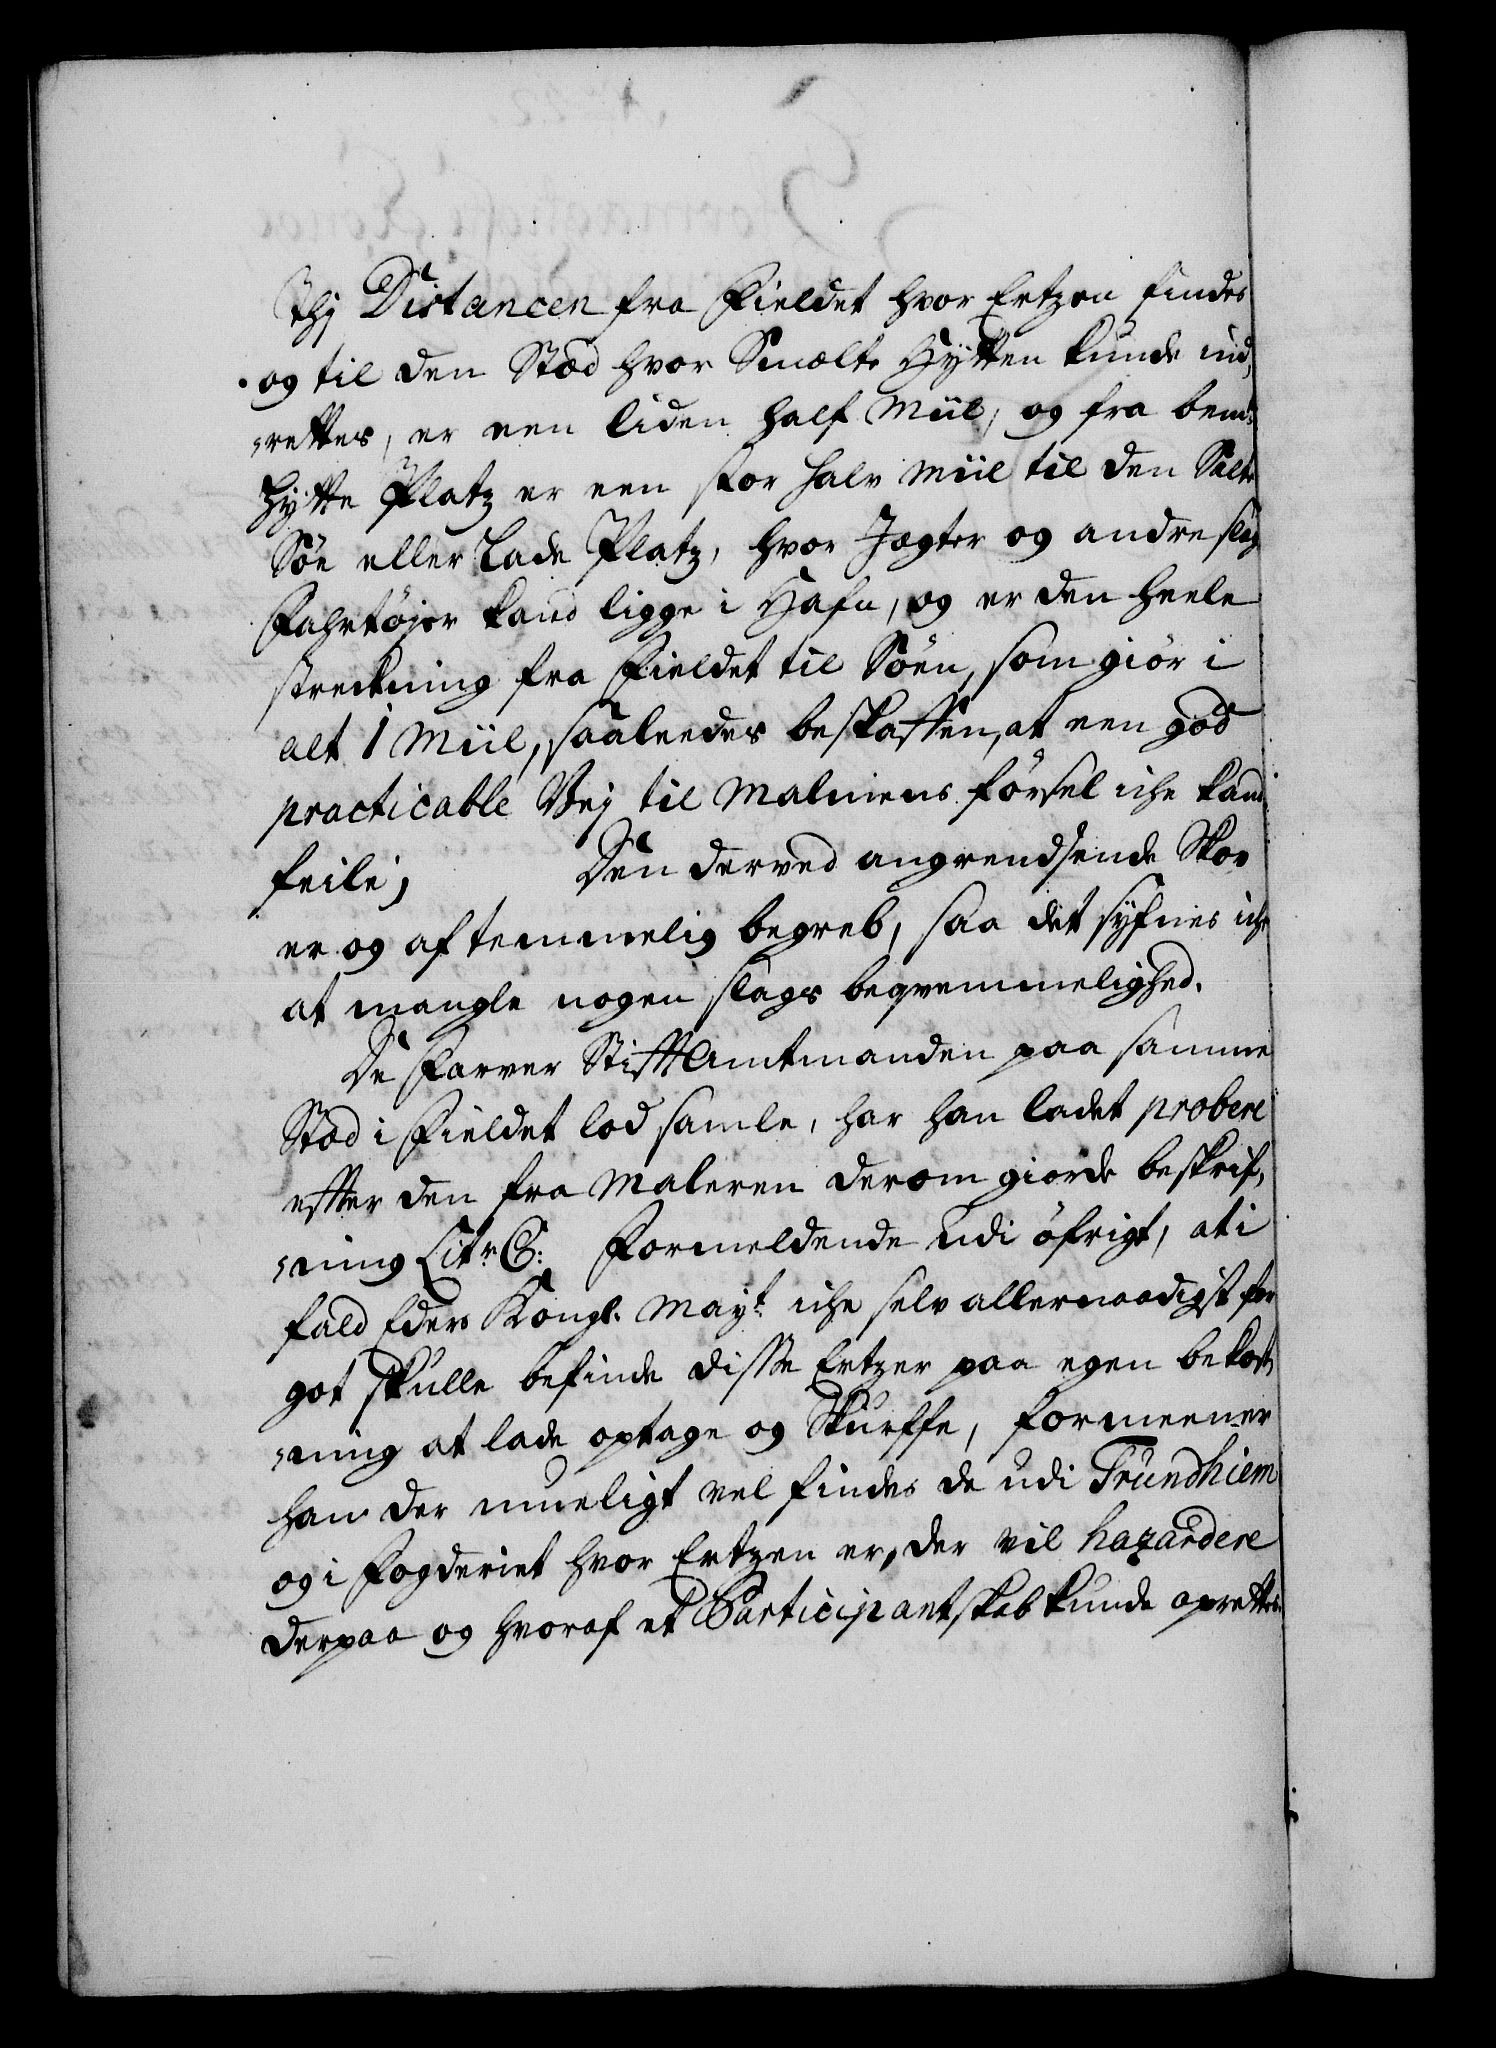 Thj Distancen fra Fieldet hvor Ertzen findes
og til den Stæd hvor Smælte Hytten kunde ind,
,rettes, er een liden half Miil, og fra bemte
Hytte Platz er een stor halv Miil til den Salte
Söe eller Lade Platz, hvor Jægter og andre slag
Fahrtøjer kand ligge i Hafn, og er den heele
streckning fra Fieldet til Söen, som giör i
alt 1 Miil, saaleedes beskaffen, at een god
practicable Vej til Malmens försel iche kand
feile, Den derved angrendsende Skov
er og af temmelig begreb, saa det syfnes iche
at mangle nogen slags beqvemmelighed.
De Farver StifftAmtmanden paa samme
Stæd i Fieldet lod samle, har han ladet probere
effter den fra Maleren derom giorde beskrif,
,ning Litr C: Formeldende udi öfrigt, at i
fald Eders Kongl. Mayt iche selv allernaadigst for
got skulle befinde disse Ertzer paa egen bekost,
,ning at lade optage og Skurffe, formeener
han der mueligt vel findes de udi Trundhiem
og i Fogderiet hvor Ertzen er, der vil hazardere
derpaa og hvoraf et Participantskab kunde oprettes